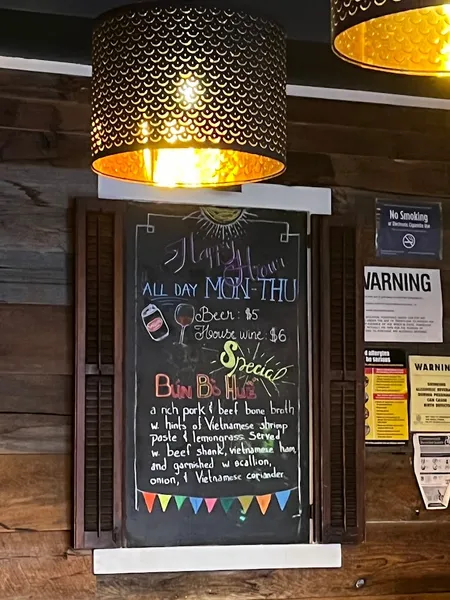 Happy
Hour
ALL DAY MON-THU
Beer: $5
House wine: $6
Special
BÚN BÒ HUẾ
a rich pork & beef bone broth
w. hints of Vietnamese shrimp
paste & lemongrass. Served
w. beef shank, vietnamese ham,
and garnished w scallion,
onion, & Vietnamese coriander.
No Smoking
or Electronic Cigarette Use
WARNING
food allergies
WARNING
DRINKING
ALCOHOLIC BEVERAGES
DURING PREGNANCY
CAN CAUSE
BIRTH DEFECTS